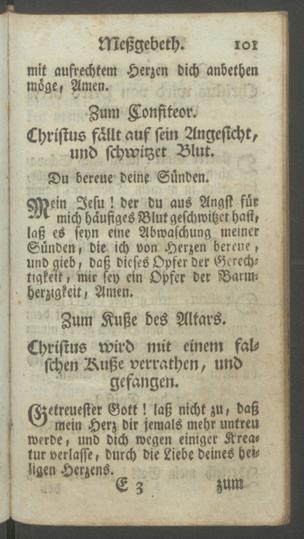 Meßgebeth. 101
mit aufrechtem Herzen dich anbethen
möge, Amen.
Zum Confiteor.
Christus fällt auf sein Angesicht,
und schwitzet Blut.
Du bereue deine Sünden.
Mein Jesu! der du aus Angst für
mich häufiges Blut geschwitzet hast,
laß es seyn eine Abwaschung meiner
Sünden, die ich von Herzen bereue,
und gieb, daß dieses Opfer der Gerech-
tigkeit, mir sey ein Opfer der Barm-
herzigkeit, Amen.
Zum Kuße des Altars.
Christus wird mit einem fal-
schen Kuße verrathen, und
gefangen.
Getreuester Gott! laß nicht zu, daß
mein Herz dir jemals mehr untreu
werde, und dich wegen einiger Krea-
tur verlasse, durch die Liebe deines hei-
ligen Herzens.
E 3 zum